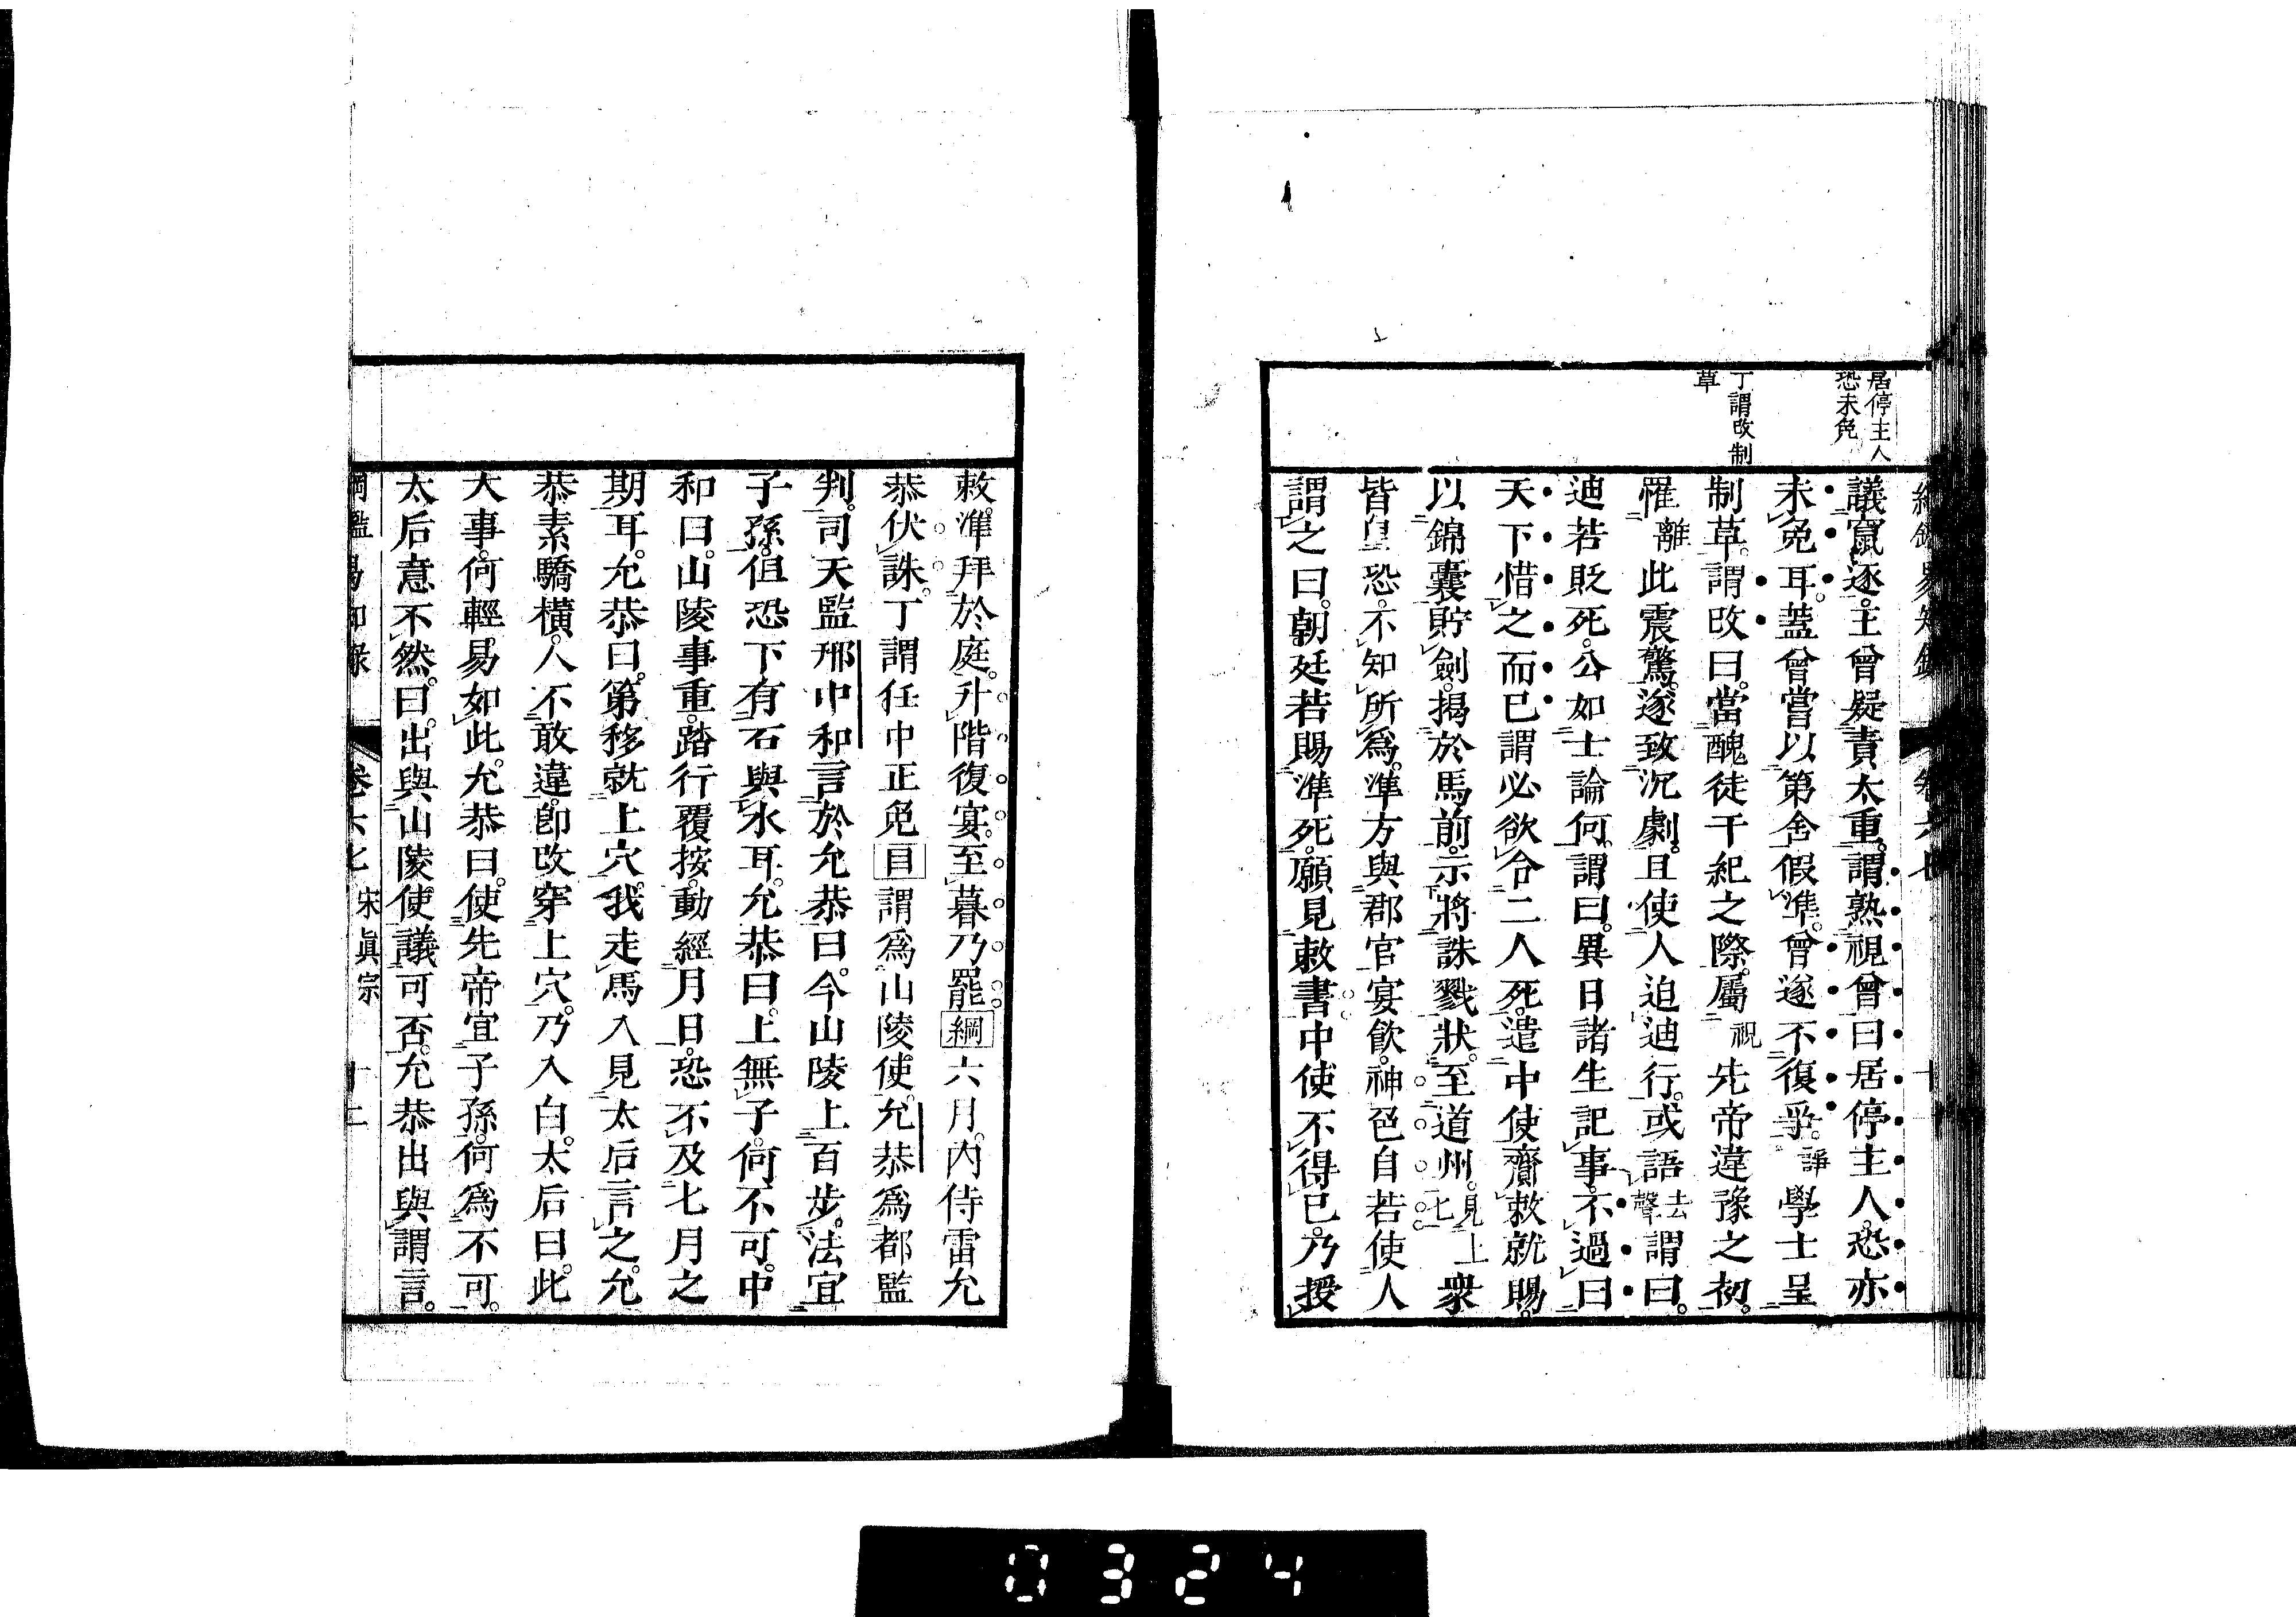 居停主人
恐未免
丁謂改制
草
議竄逐。王曾疑責太重。謂熟視曾曰。居停主人。恐亦
未免耳。蓋曾嘗以第舍假準。曾遂不復爭。諍學士呈
制草。謂改曰。當醜徒干紀之際。屬祝先帝違豫之初。
罹離此震驚。遂致沉劇。且使人迫迪行。或語去聲謂曰。
迪若貶死。公如士論何。謂曰。異日諸生記事。不過曰
天下惜之而已。謂必欲令二人死。遣中使齎敕就賜。
以錦囊貯劍。揭於馬前。示將誅戮狀。至道州。見上七一衆
皆皇恐。不知所爲。準方與郡官宴飮。神色自若。使人
謂之曰。朝廷若賜準死。願見敕書。中使不得已。乃授
敕。準拜於庭。升階復宴。至暮乃罷。綱六月。內侍雷允
恭伏誅。丁謂任中正免目謂爲山陵使。允恭爲都監
判。司天監邢中和言於允恭曰。今山陵上百步。法宜
子孫。但恐下有石與水耳。允恭曰。上無子。何不可。中
和曰。山陵事重。踏行覆按。動經月日。恐不及七月之
期耳。允恭曰。第移就上穴。我走馬入見太后言之。允
恭素驕橫。人不敢違。卽改穿上穴。乃入白。太后曰。此
大事。何輕易如此。允恭曰。使先帝宜子孫。何爲不可。
太后意不然。曰。出與山陵使議可否。允恭出與謂言。
綱鑑易知錄 卷六七 宋眞宗 十二
0324